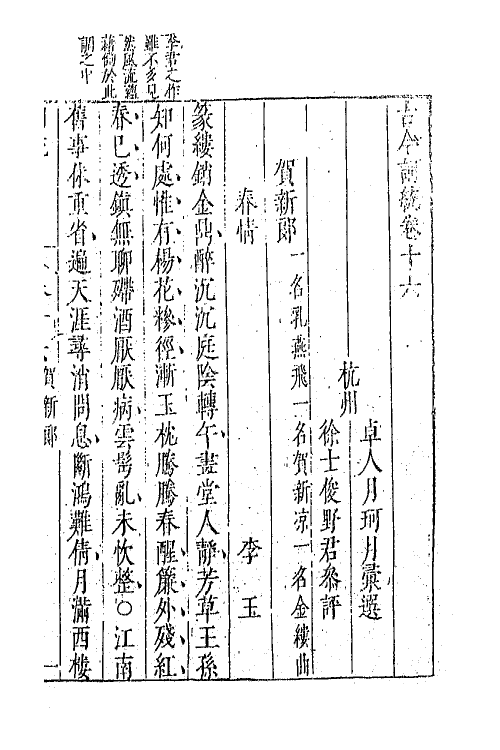 古今詞統卷十六
杭州
卓人月珂月彚選
徐士俊野君叅評
賀新郎 一名乳燕飛一名賀新凉一名金縷曲
春情 李玉
篆縷銷金鼎醉沉沉庭陰轉午畫堂人靜芳草王孫
知何處惟有楊花糝徑漸玉枕騰騰春醒簾外殘紅
春已透鎮無聊殢酒厭厭病雲鬂亂未忺整○江南
舊事休重省遍天涯尋消問息斷鴻難倩月滿西樓
賀新郎
一
李君之作
雖不多見
然風流蘊
藉倫於此
調之中